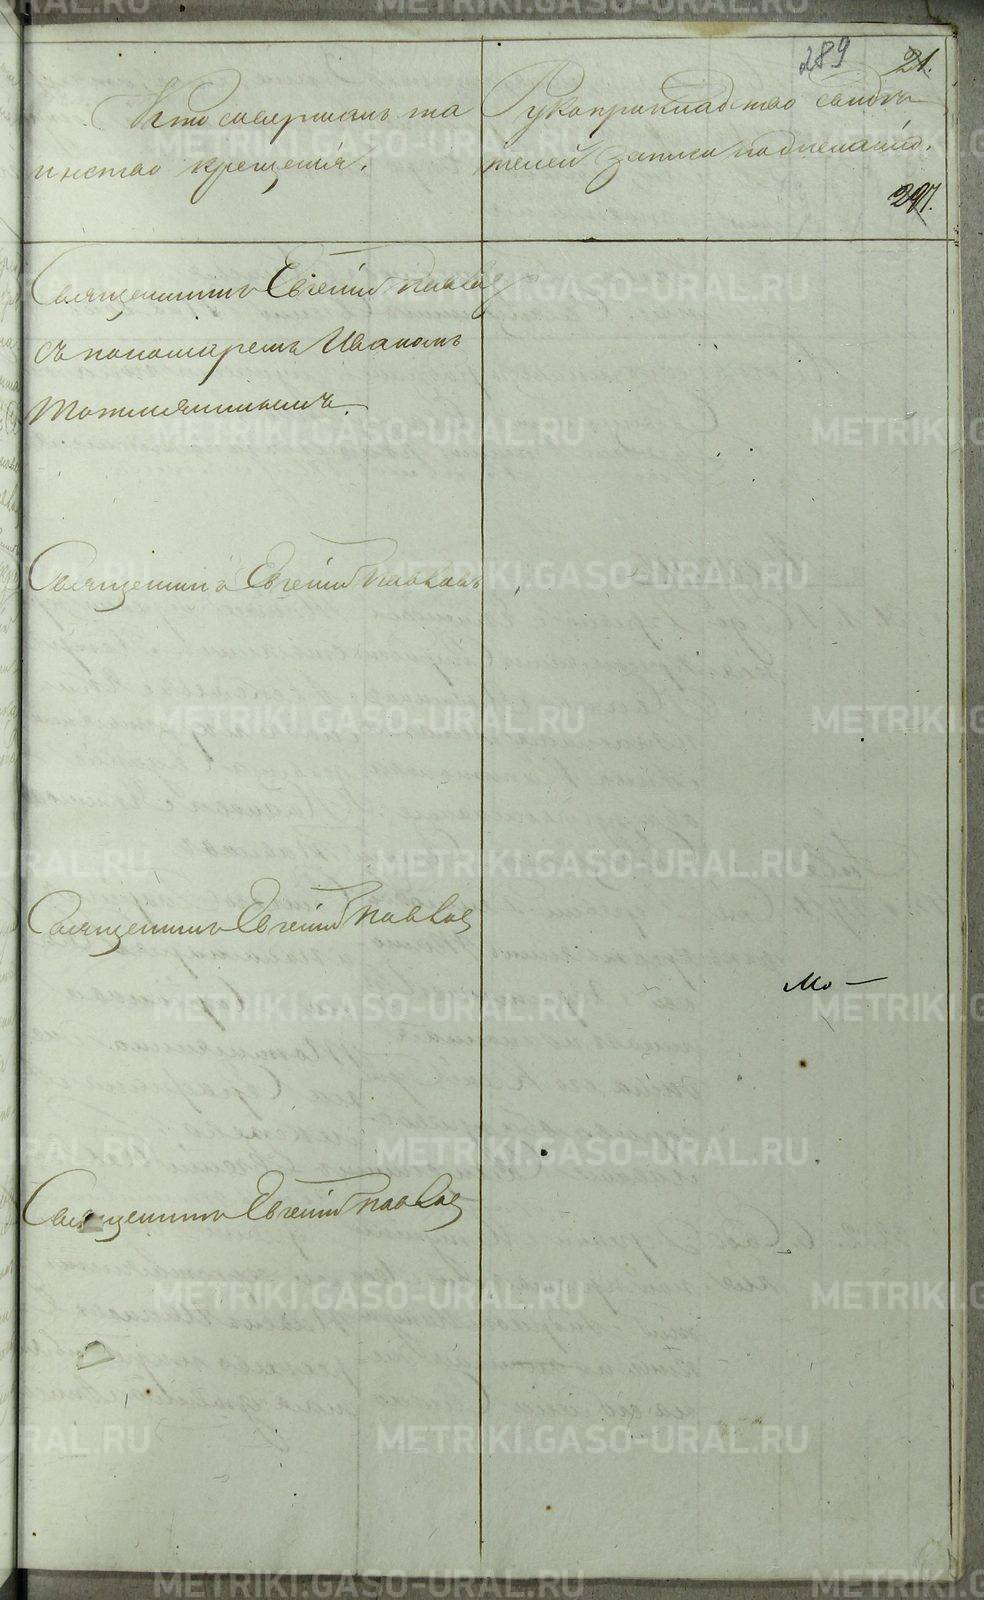 289 21.
Кто совершалъ та
инство крещенія.
Рукоприкладство свидѣ
телей записи по желанію.
297.
Священникъ Евгеній Павловъ
съ пономаремъ Иваномъ
Священникъ Евгеній Павловъ
Священникъ Евгеній Павловъ
Мо—
Священникъ Евгеній Павловъ
METRIKI.GASO-URAL.RU